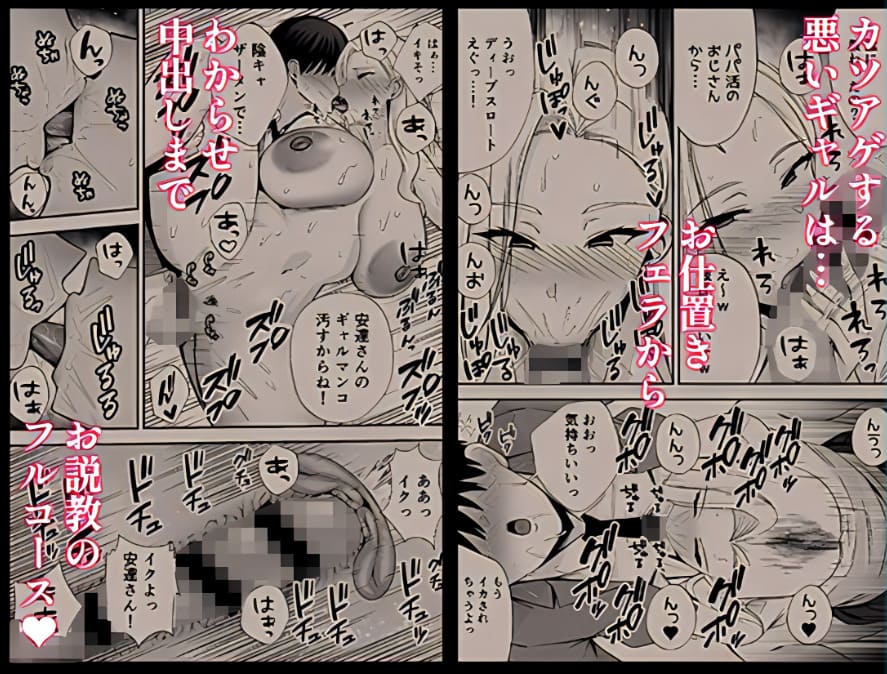 カツアゲする
悪いギャルは…
お仕置き
フェラから
わからせ
中出しまで
お説教の
フルコース♥
パパ活の
おじさん
から…
はぁ
れろ
れろ
れろ
はぁ
んっ
んぐ
じゅぽっ
じゅるる
うおっ
ディープスロート
えぐっ…!
んっ
んお
じゅぽ
じゅるる
んっ
んっ
グポ
グポ
グポ
おおっ
気持ちいいっ
もう
イカされ
ちゃうよっ
んっ♥
んっ♥
はっ
はぁ…
イキそっ
あっ
陰キャ
ザーメンで…
あっ♡
はぁ
ズプ
ズプ
ズプ
安達さんの
ギャルマンコ
汚すからね!
んっ
はっ
じゅるる
はぁ
あっ
ああっ
イクっ
イクよっ
安達さん!
はぁっ
ドチュ
ドチュ
ドチュ